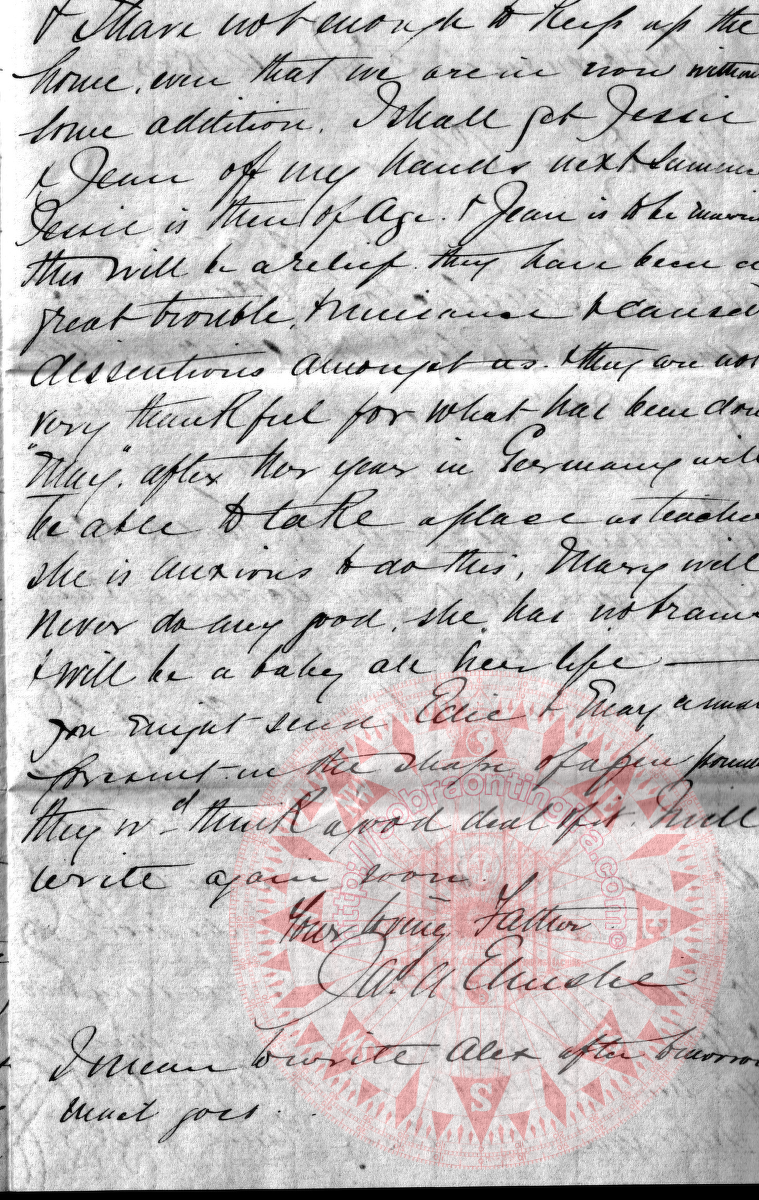 & I have not enough to keep up the
home, even that we are in now withou
some addition. I shall get Jessie
& Jean off my hands next Summe
Jessie is then of Age. & Jean is to be marri
this will be a relief. they have been a
great trouble, & nuisance & caused
dissentions amongst us. & they are not
very thankful for what has been don
"May", after her year in Germany will
be able to take a place as teache
she is anxious to do this, Mary will
never do any good, she has no brain
& will be a baby all her life —
you might send Edie & May a small
present in the shape of a few pound
they wd think a good deal of it. I will
write again soon.
Your loving Father
Ja. A.
I mean to write Alex after tomorrow
mail goes.
http://sobraontingha.com
S
E